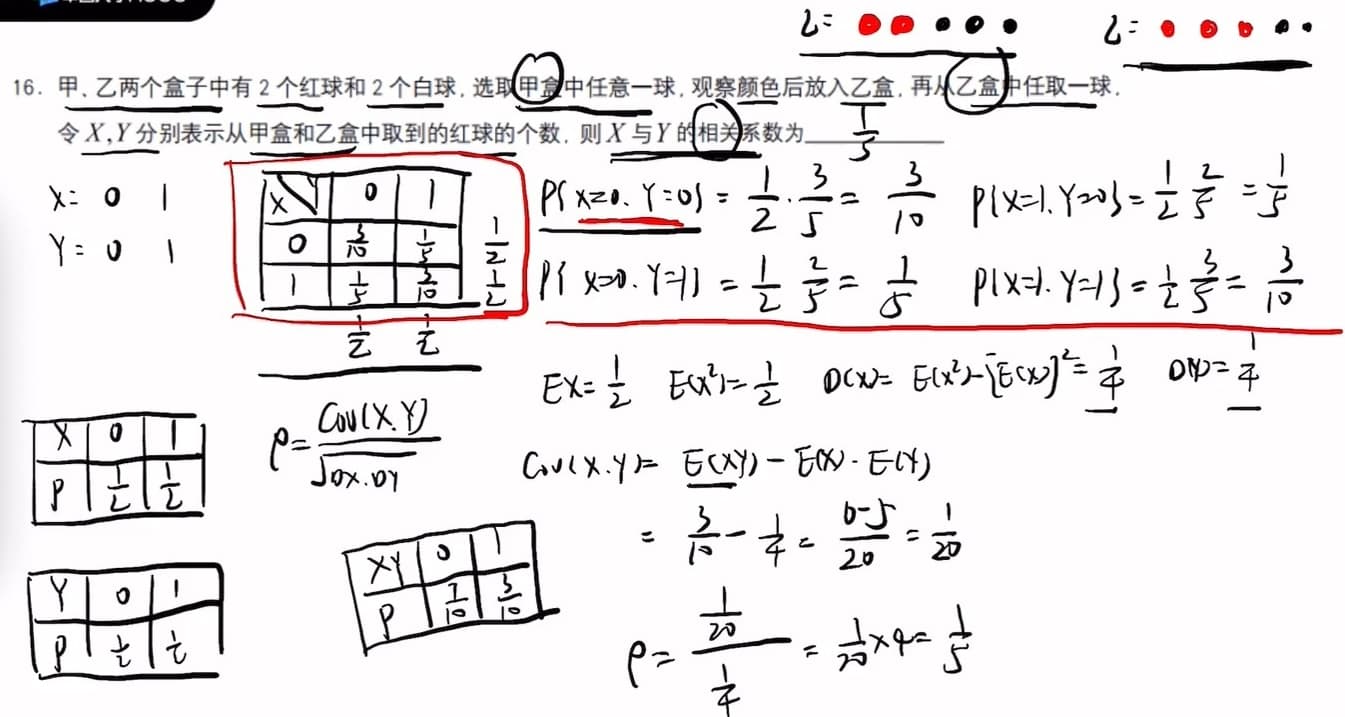 乙=
乙=
16. 甲、乙两个盒子中有 2 个红球和 2 个白球, 选取甲盒中任意一球, 观察颜色后放入乙盒, 再从乙盒中任取一球.
令 X,Y 分别表示从甲盒和乙盒中取到的红球的个数, 则 X 与 Y 的相关系数为 1/5
X= 0 1
Y= 0 1
X Y 0 1
0 3/10 1/5 1/2
1 1/5 3/10 1/2
1/2 1/2
P{X=0. Y=0} = 1/2 · 3/5 = 3/10 P{X=1. Y=0} = 1/2 2/5 = 1/5
P{X=0. Y=1} = 1/2 2/5 = 1/5 P{X=1. Y=1} = 1/2 3/5 = 3/10
EX= 1/2 E(X²)= 1/2 D(X)= E(X²)-[E(X)]²= 1/4 D(Y)= 1/4
ρ= Cov(X.Y)/√DX.DY
Cov(X.Y)= E(XY) - E(X) · E(Y)
= 3/10 - 1/4 = 6-5/20 = 1/20
X 0 1
P 1/2 1/2
Y 0 1
P 1/2 1/2
XY 0 1
P 7/10 3/10
ρ= 1/20 / 1/4 = 1/20 ×4= 1/5